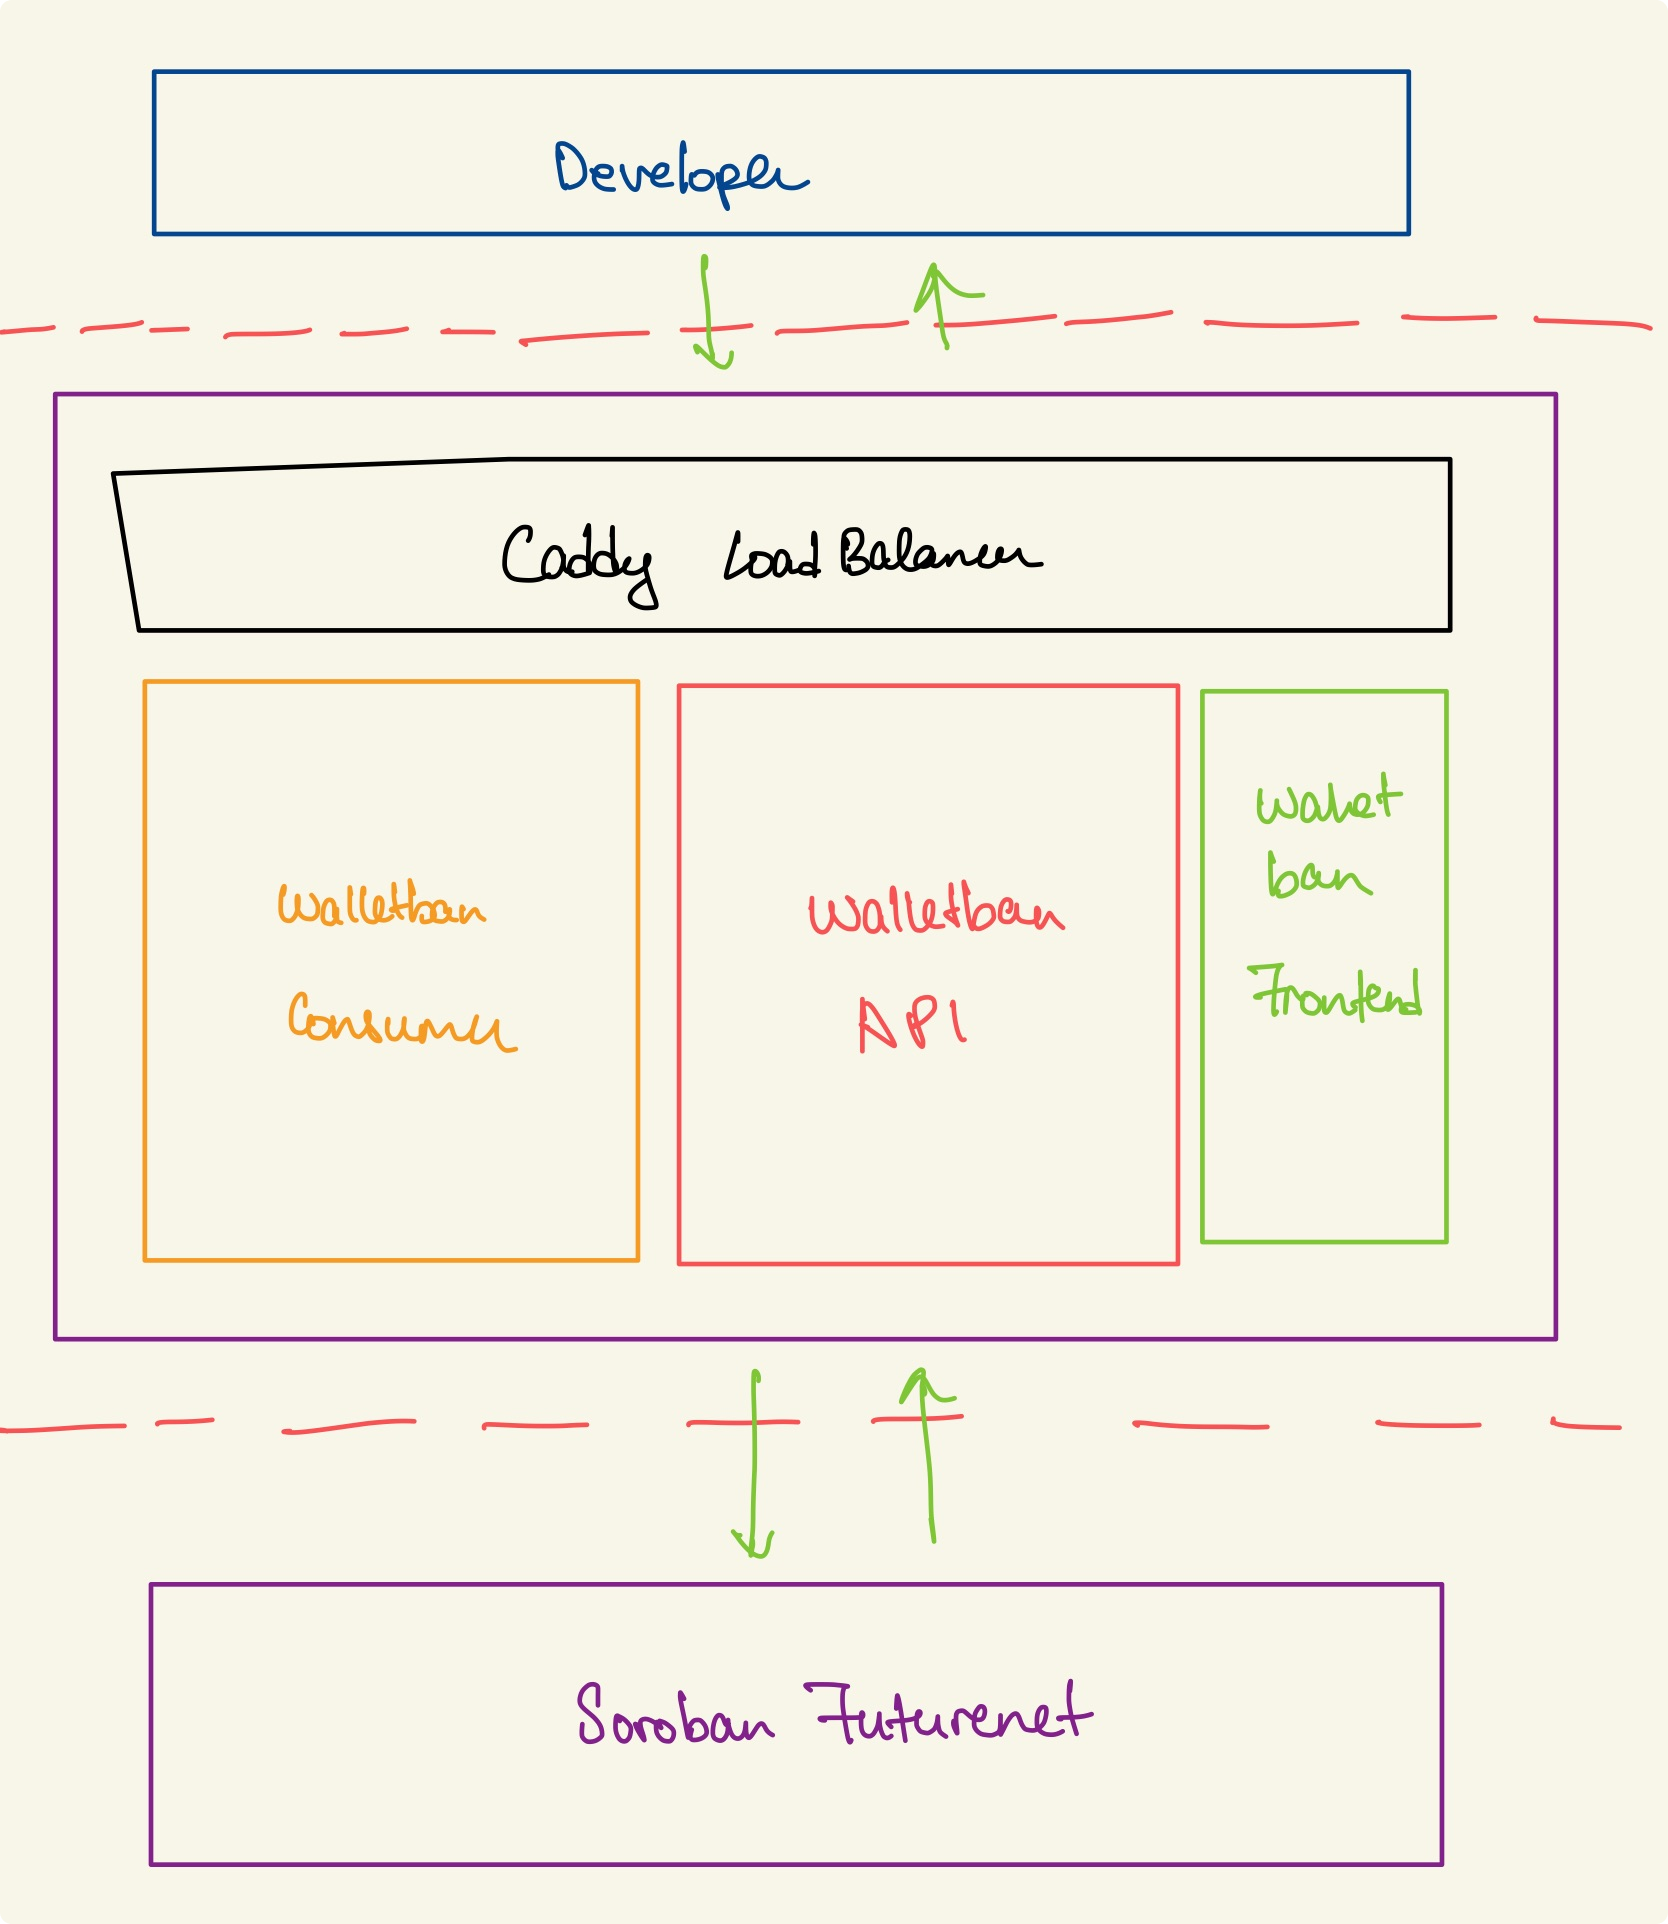 Developer
Caddy Load Balancer
Walletban
Consumer
Walletban
API
Wallet
ban
Frontend
Soroban Futurenet